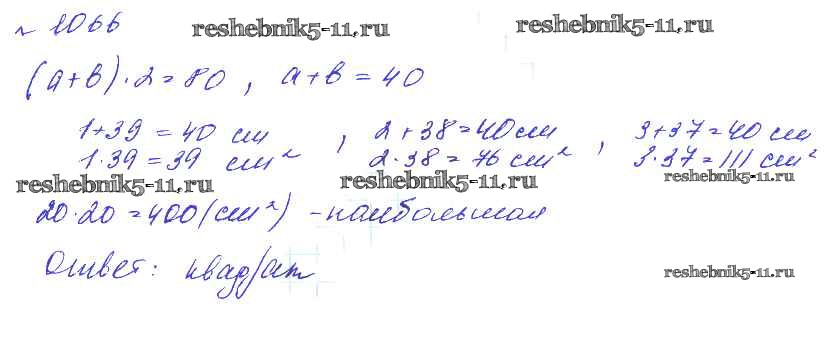 № 1066 reshebnik5-11.ru reshebnik5-11.ru
(a+b)·2=80, a+b=40
1+39=40 см, 2+38=40см, 3+37=40 см
1·39=39 см², 2·38=76 см², 3·37=111 см²
reshebnik5-11.ru reshebnik5-11.ru reshebnik5-11.ru
20·20=400(см²) -наибольшая
Ответ: квадрат
reshebnik5-11.ru